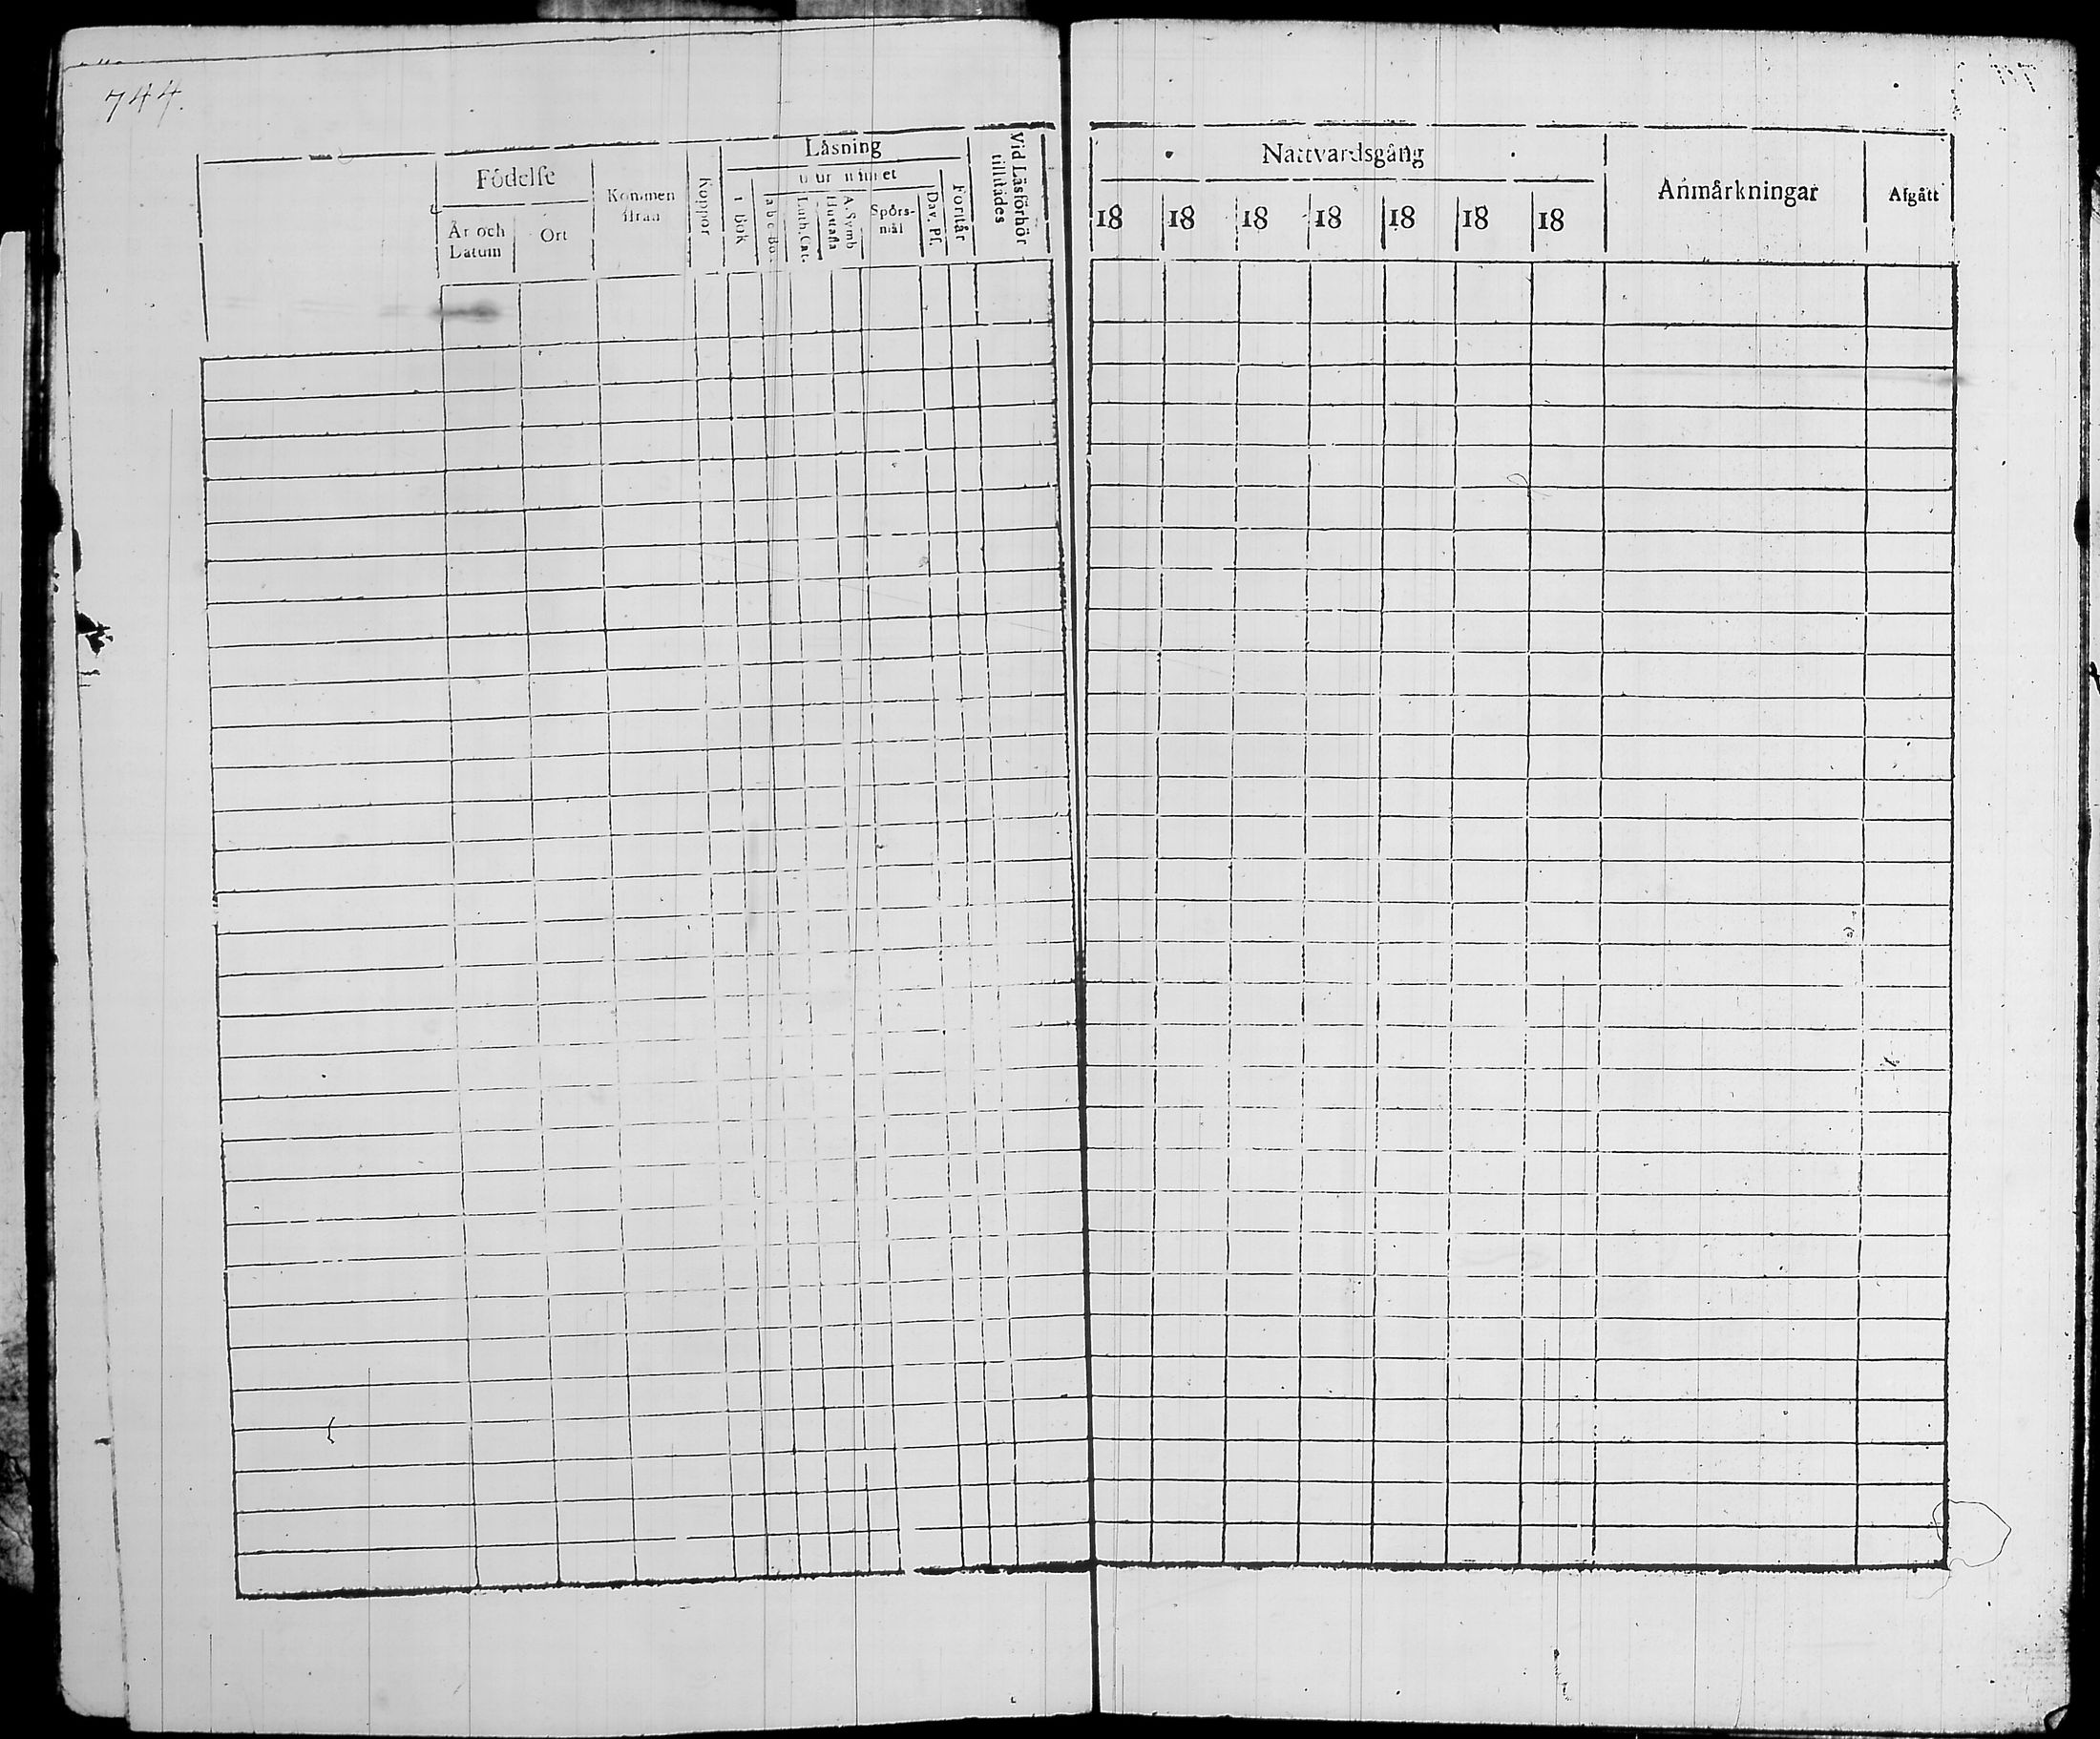 744.
Födelse
År och Datum
Ort
Kommen ifrån
Koppor
Läsning
i bok
utur minnet
a b c Bo
Luth. Cat.
Hustafla
A. Symb
Spörs-
mål
Dav. Ps.
Förstår
Vid Läsförhör
tillstädes
Nattvardsgång
18 18 18 18 18 18 18
Anmärkningar
Afgått